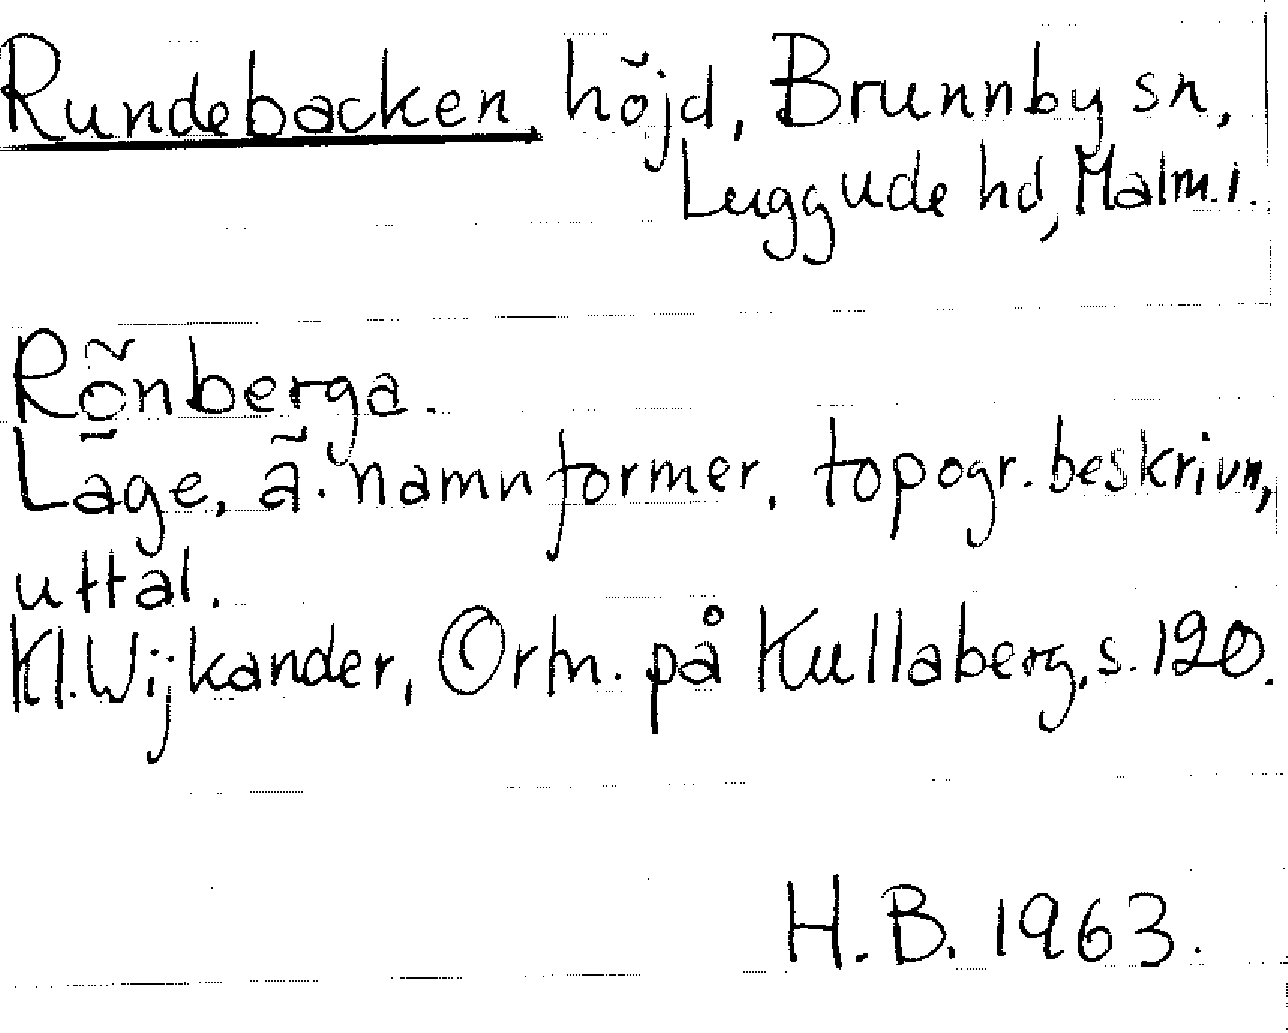 Rundebacken, höjd, Brunnby sn,
Luggude hd, Malm.l.
Rönberga.
Läge, ä. namnformer, topogr. beskrivn,
uttal.
Kl. Wijkander, Ortn. på Kullaberg, s. 120.
H. B. 1963.